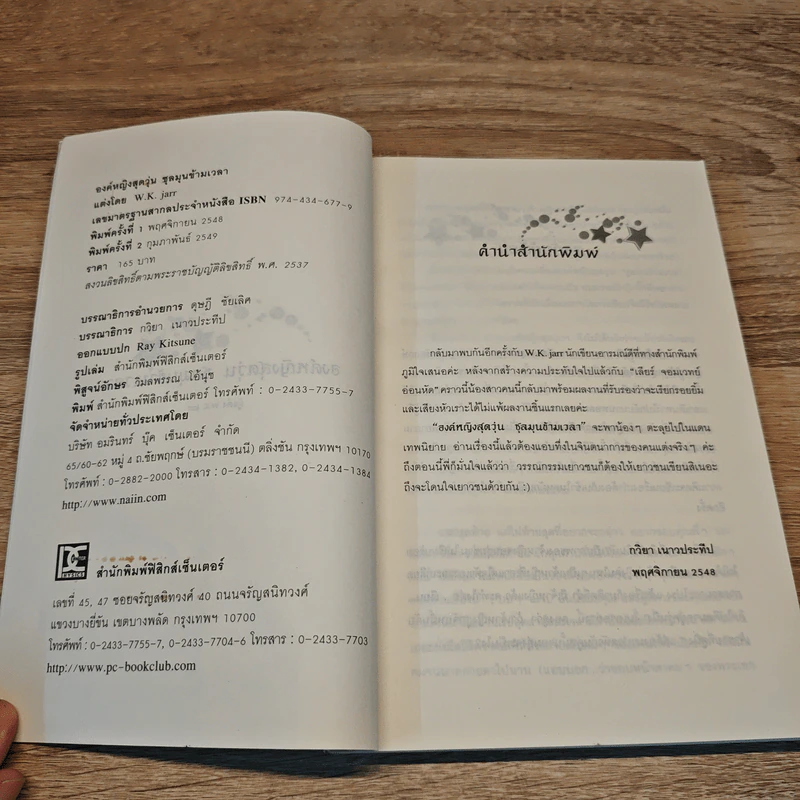 องค์หญิงสุดวุ่น ชุลมุนข้ามเวลา
แต่งโดย W.K. jarr
เลขมาตรฐานสากลประจำหนังสือ ISBN 974-434-677-9
พิมพ์ครั้งที่ 1 พฤศจิกายน 2548
พิมพ์ครั้งที่ 2 กุมภาพันธ์ 2549
ราคา 165 บาท
สงวนลิขสิทธิ์ตามพระราชบัญญัติลิขสิทธิ์ พ.ศ. 2537
บรรณาธิการอำนวยการ ดุษฎี ชัยเลิศ
บรรณาธิการ กวิยา เนาวประทีป
ออกแบบปก Ray Kitsune
รูปเล่ม สำนักพิมพ์ฟิสิกส์เซ็นเตอร์
พิสูจน์อักษร วิมลพรรณ โอ้นุช
พิมพ์ สำนักพิมพ์ฟิสิกส์เซ็นเตอร์ โทรศัพท์ : 0-2433-7755-7
จัดจำหน่ายทั่วประเทศโดย
บริษัท อมรินทร์ บุ๊ค เซ็นเตอร์ จำกัด
65/60-62 หมู่ 4 ถ.ชัยพฤกษ์ (บรมราชชนนี) ตลิ่งชัน กรุงเทพฯ 10170
โทรศัพท์ : 0-2882-2000 โทรสาร : 0-2434-1382, 0-2434-1384
http://www.naiin.com
PHYSICS
สำนักพิมพ์ฟิสิกส์เซ็นเตอร์
เลขที่ 45, 47 ซอยจรัญสนิทวงศ์ 40 ถนนจรัญสนิทวงศ์
แขวงบางยี่ขัน เขตบางพลัด กรุงเทพฯ 10700
โทรศัพท์ : 0-2433-7755-7, 0-2433-7704-6 โทรสาร : 0-2433-7703
http://www.pc-bookclub.com
คำนำสำนักพิมพ์
กลับมาพบกันอีกครั้งกับ W.K. jarr นักเขียนอารมณ์ดีที่ทางสำนักพิมพ์
ภูมิใจเสนอค่ะ หลังจากสร้างความประทับใจไปแล้วกับ "เลียร์ จอมเวทย์
อ่อนหัด" คราวนี้น้องสาวคนนี้กลับมาพร้อมผลงานที่รับรองว่าจะเรียกรอยยิ้ม
และเสียงหัวเราะได้ไม่แพ้ผลงานชิ้นแรกเลยค่ะ
"องค์หญิงสุดวุ่น ชุลมุนข้ามเวลา" จะพาน้องๆ ตะลุยไปในแดน
เทพนิยาย อ่านเรื่องนี้แล้วต้องแอบทึ่งในจินตนาการของคนแต่งจริงๆ ค่ะ
ถึงตอนนี้พี่ก็มั่นใจแล้วว่า วรรณกรรมเยาวชนก็ต้องให้เยาวชนเขียนสิเนอะ
ถึงจะโดนใจเยาวชนด้วยกัน :)
กวิยา เนาวประทีป
พฤศจิกายน 2548